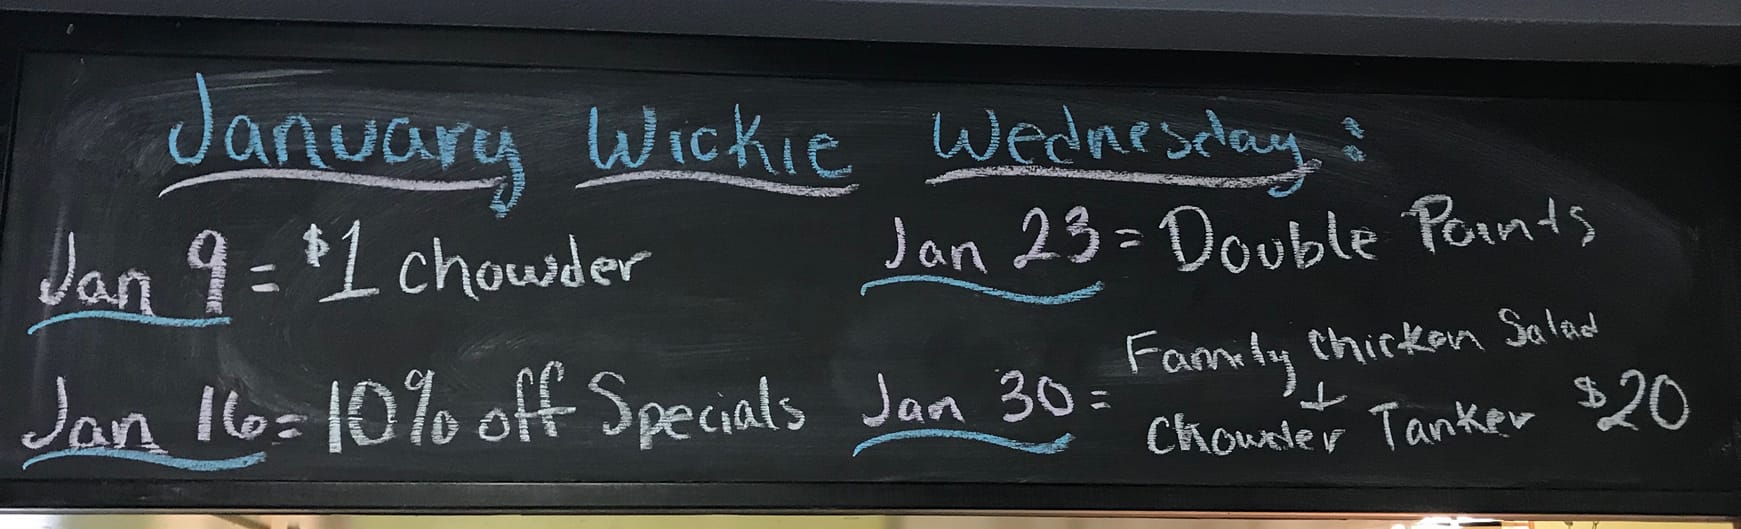 January Wickie Wednesday:
Jan 9 = $1 chowder
Jan 16 = 10% off Specials
Jan 23 = Double Points
Jan 30 = Family Chicken Salad
+
Chowder Tanker $20